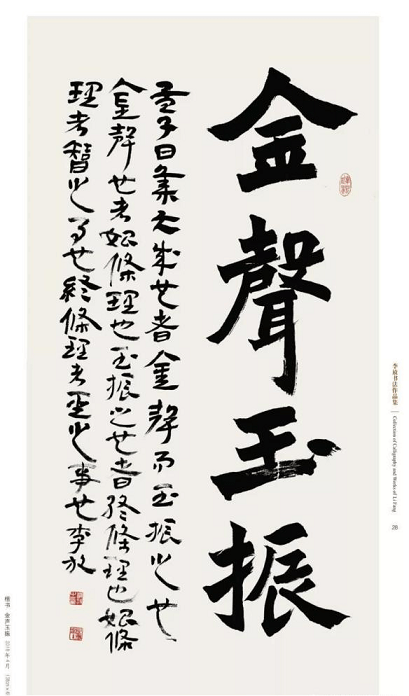 金聲玉振
孟子曰集大成也者金聲而玉振之也
金聲也者始條理也玉振之也者終條理也始條
理者智之事也終條理者聖之事也李放
李放书法作品集
Collection of Calligraphy and Works of Li Fang
28
楷书 金声玉振